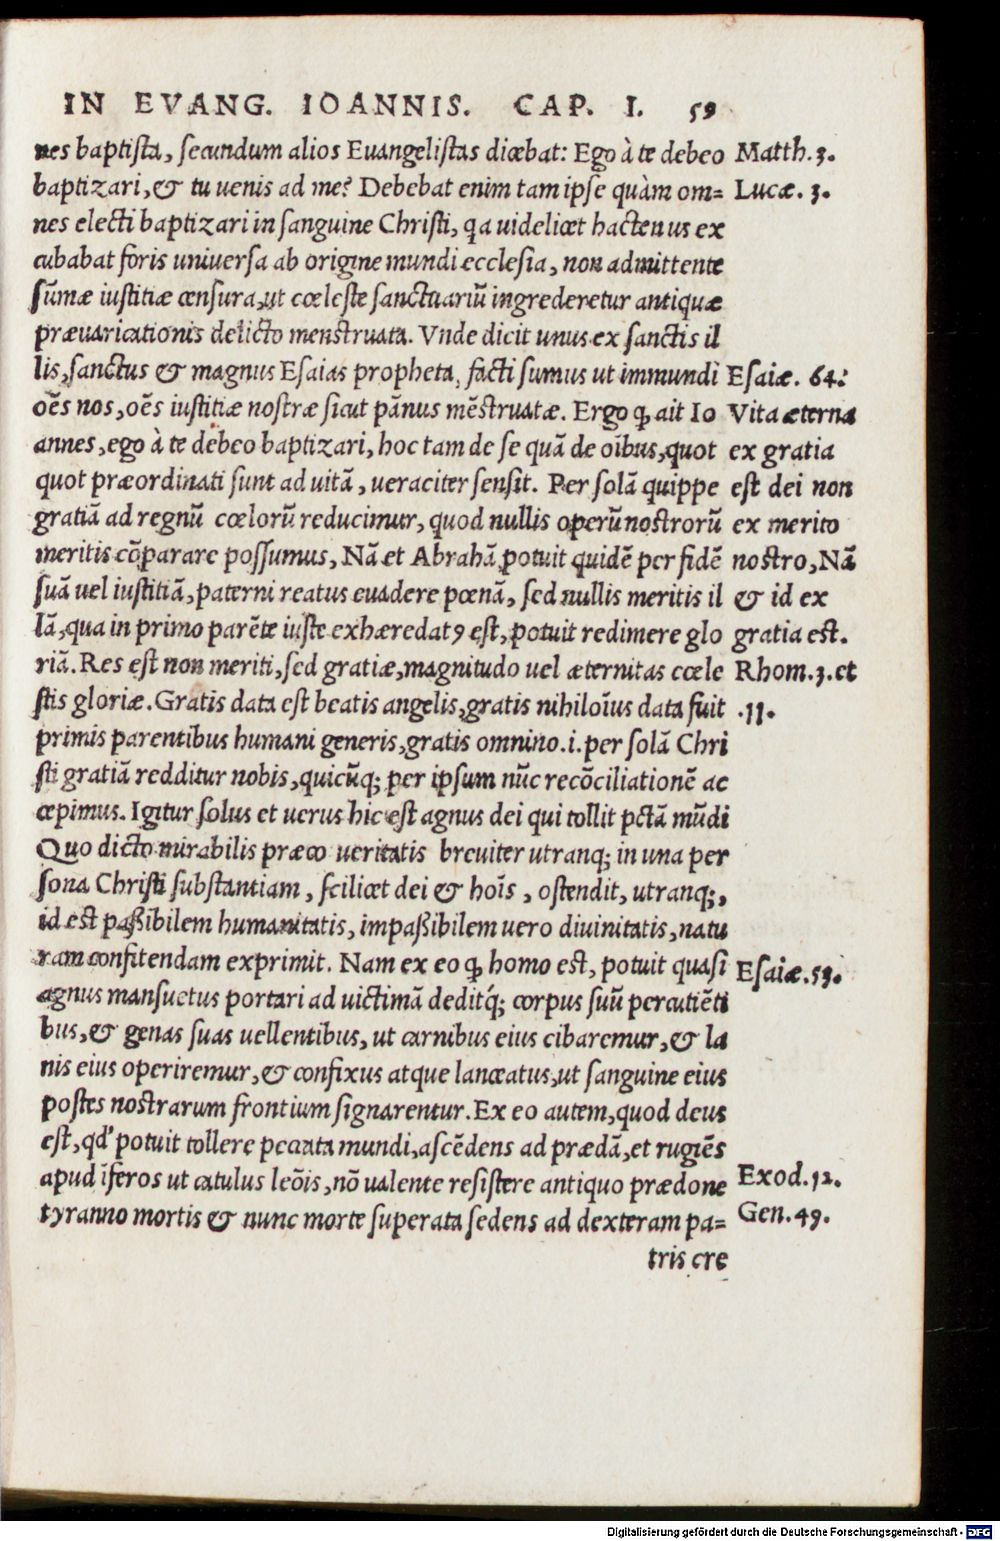 IN EVANG. IOANNIS. CAP. I. 59
nes baptista, secundum alios Euangelistas dicebat: Ego à te debeo Matth.3.
baptizari, & tu uenis ad me? Debebat enim tam ipse quàm om= Lucæ. 3.
nes electi baptizari in sanguine Christi, qa uidelicet hactenus ex
cubabat foris uniuersa ab origine mundi ecclesia, non admittente
sūmæ iustitiæ censura, ut cœleste sanctuariū ingrederetur antiquæ
præuaricationis delicto menstruata. Vnde dicit unus ex sanctis il
lis, sanctus & magnus Esaias propheta, facti sumus ut immundi Esaiæ. 64.
oēs nos, oēs iustitiæ nostræ sicut pānus mēstruatæ. Ergo ꝙ ait Io Vita æterna
annes, ego à te debeo baptizari, hoc tam de se quā de oībus, quot ex gratia
quot præordinati sunt ad uitā, ueraciter sensit. Per solā quippe est dei non
gratiā ad regnū cœlorū reducimur, quod nullis operū nostrorū ex merito
meritis cōparare possumus, Nā et Abrahā potuit quidē per fidē nostro, Nā
suā uel iustitiā, paterni reatus euadere pœnā, sed nullis meritis il & id ex
lā, qua in primo parēte iuste exhæredatꝰ est, potuit redimere glo gratia est.
riā. Res est non meriti, sed gratiæ, magnitudo uel æternitas cœle Rhom.3.et
stis gloriæ. Gratis data est beatis angelis, gratis nihiloīus data fuit .11.
primis parentibus humani generis, gratis omnino .i. per solā Chri
sti gratiā redditur nobis, quicūq; per ipsum nūc recōciliationē ac
cepimus. Igitur solus et uerus hic est agnus dei qui tollit pctā mūdi
Quo dicto mirabilis præco ueritatis breuiter utranq; in una per
sona Christi substantiam, scilicet dei & hoīs, ostendit, utranq;,
id est passibilem humanitatis, impassibilem uero diuinitatis, natu
ram confitendam exprimit. Nam ex eo ꝙ homo est, potuit quasi Esaiæ.53.
agnus mansuetus portari ad uictimā deditq́; corpus suū percutiēti
bus, & genas suas uellentibus, ut carnibus eius cibaremur, & la
nis eius operiremur, & confixus atque lanceatus, ut sanguine eius
postes nostrarum frontium signarentur. Ex eo autem, quod deus
est, qd' potuit tollere peccata mundi, ascēdens ad prædā, et rugiēs
apud īferos ut catulus leōis, nō ualente resistere antiquo prædone Exod.12.
tyranno mortis & nunc morte superata sedens ad dexteram pa= Gen.49.
tris cre
Digitalisierung gefördert durch die Deutsche Forschungsgemeinschaft - DFG